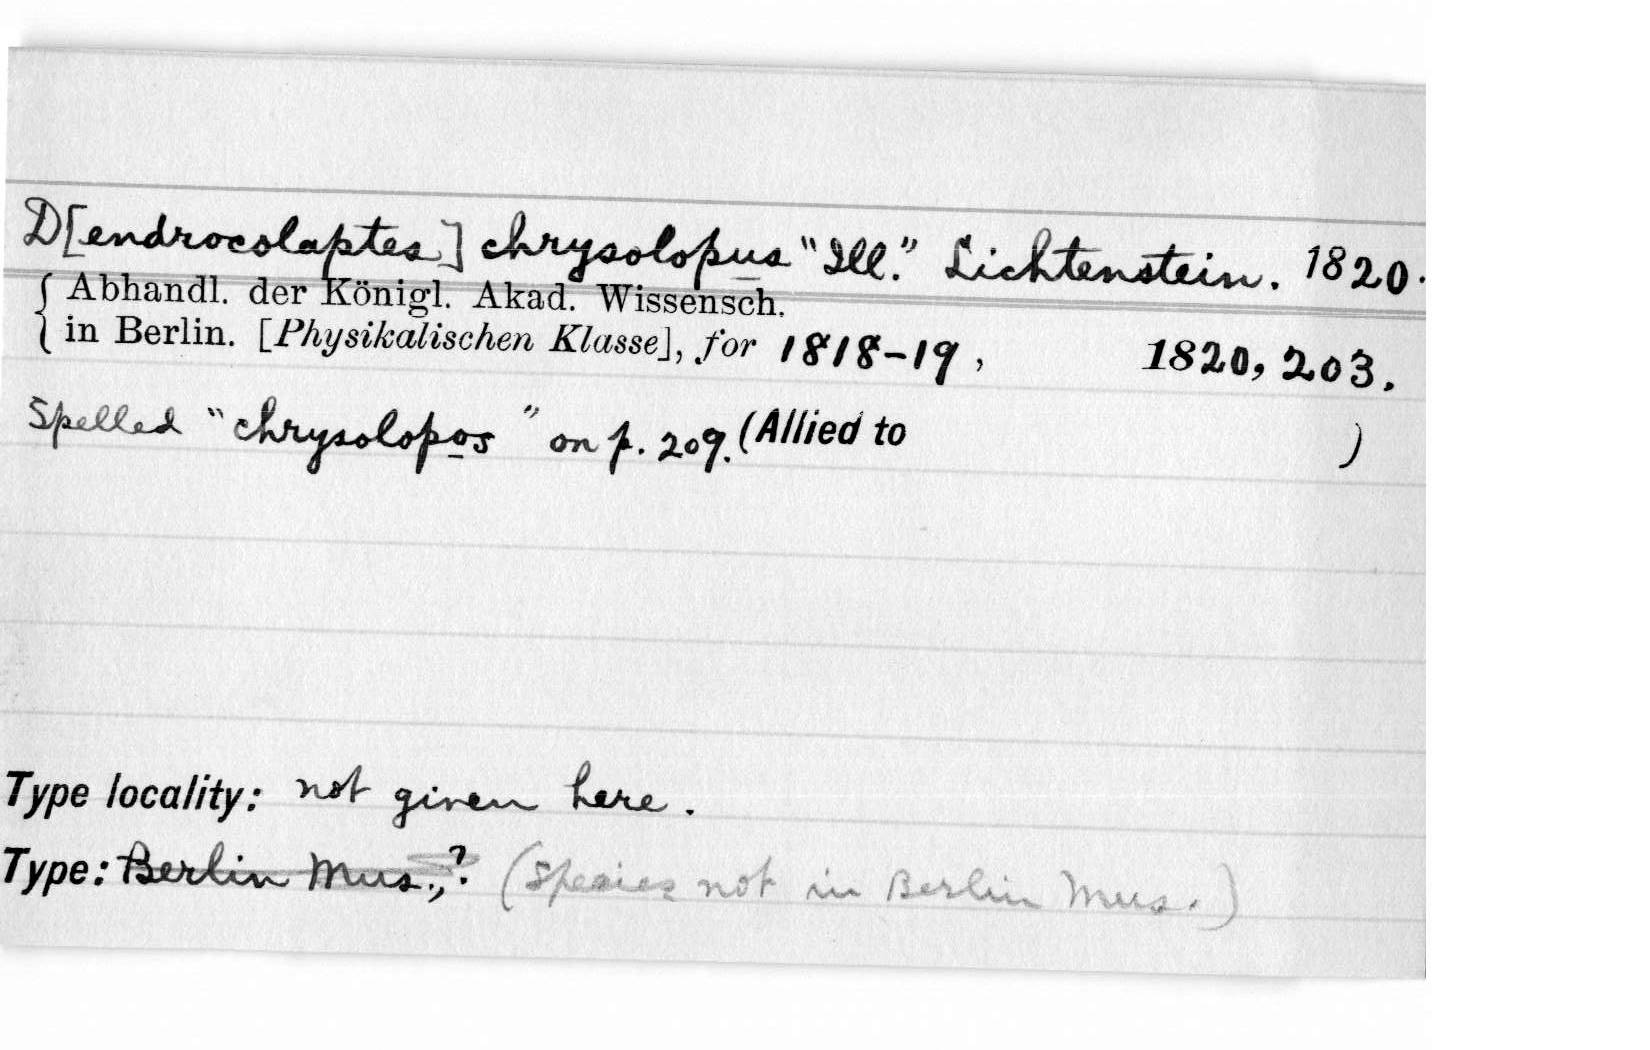 D[endrocolaptes] chrysolopus "Ill." Lichtenstein. 1820.
{ Abhandl. der Königl. Akad. Wissensch.
{ in Berlin. [Physikalischen Klasse], for 1818-19, 1820, 203.
Spelled "chrysolopos" on p. 209. (Allied to )
Type locality: not given here.
Type: Berlin Mus., ? (Species not in Berlin Mus.)